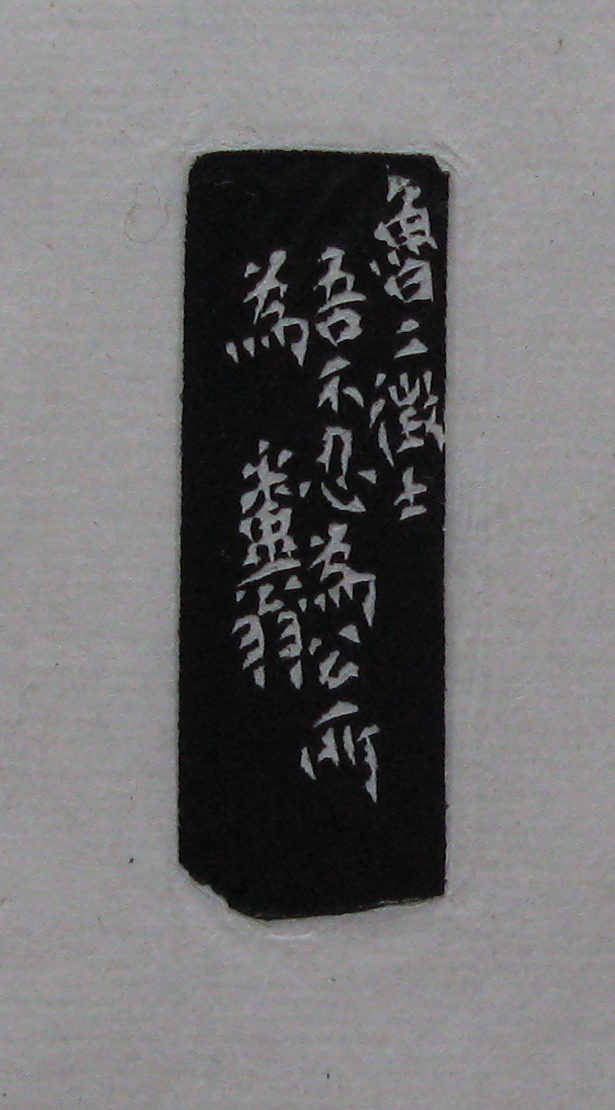 魯二徵士
吾不忍為公所
為 糞翁